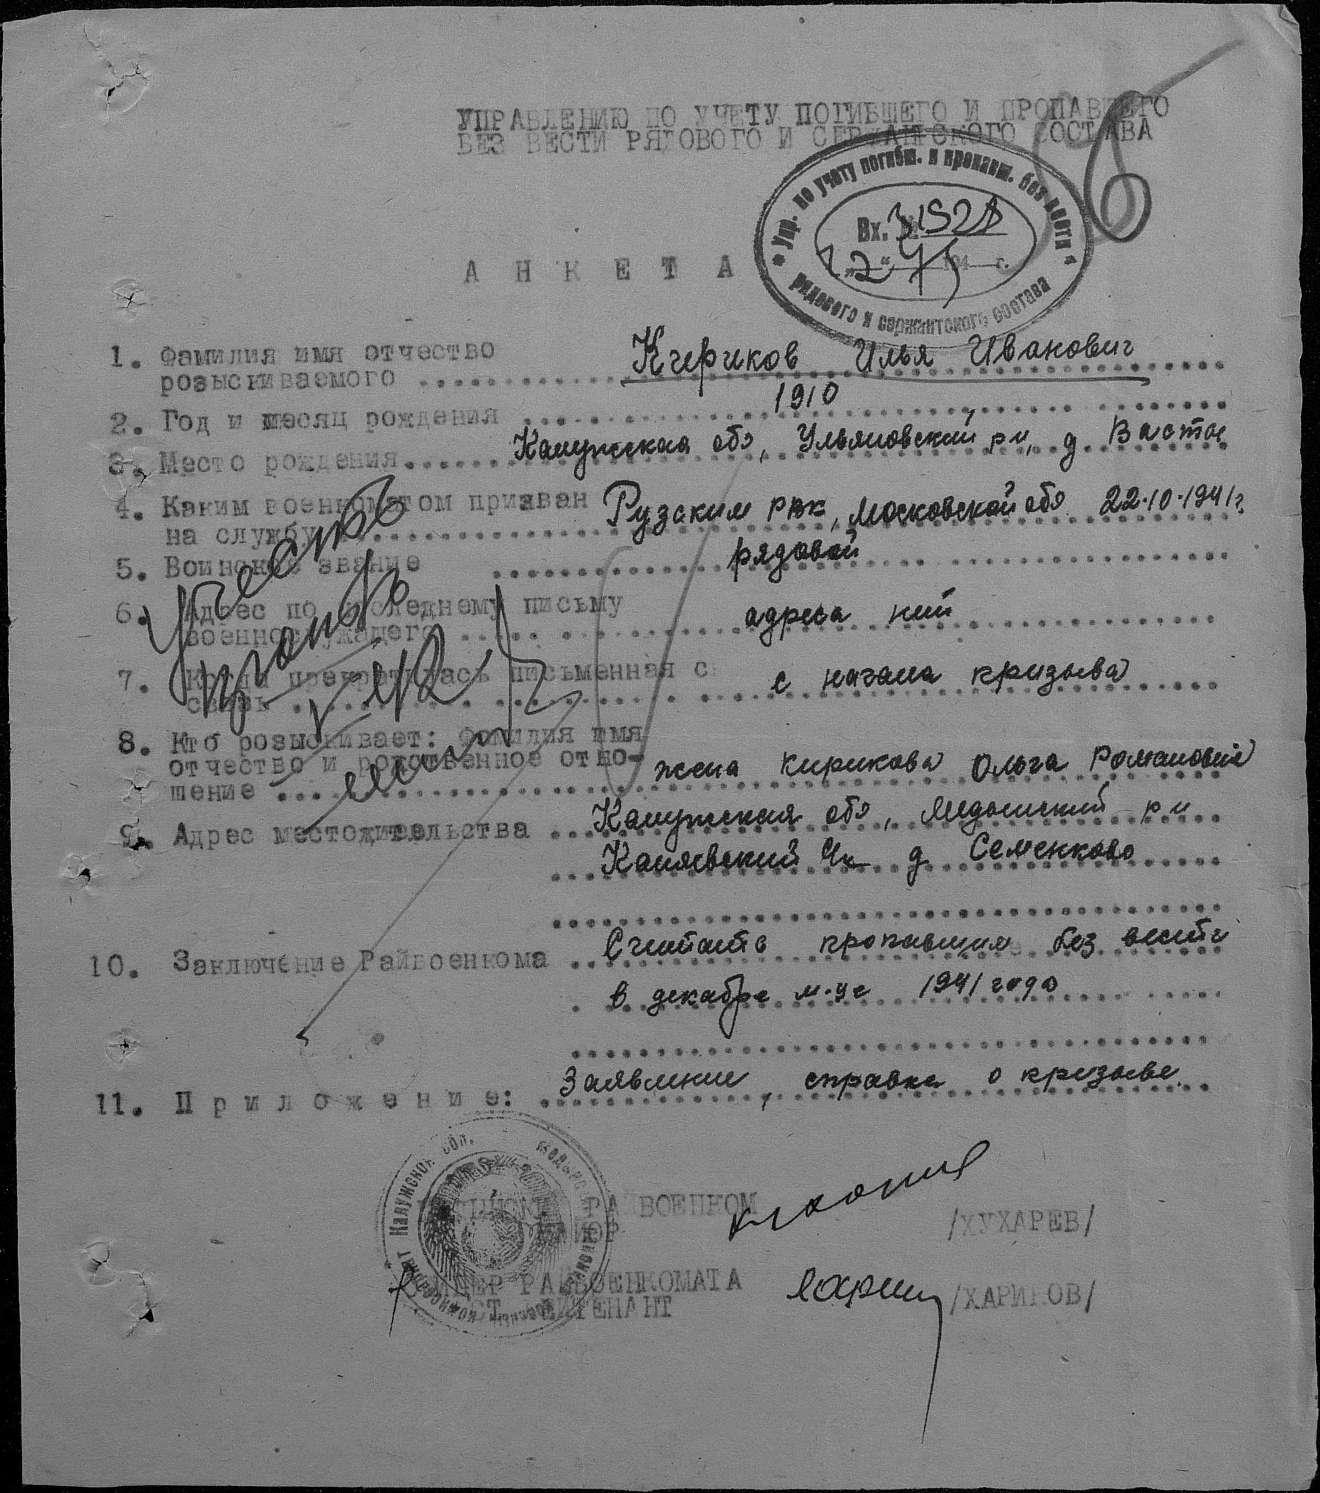 УПРАВЛЕНИЮ ПО УЧЕТУ ПОГИБШЕГО И ПРОПАВШЕГО
БЕЗ ВЕСТИ РЯДОВОГО И СЕРЖАНТСКОГО СОСТАВА
Упр. по учету погибш. и пропавш. без вести
Вх. №
194 г.
рядового и сержантского состава
АНКЕТА
1. Фамилия имя отчество
розыскиваемого Кириков Илья Иванович
2. Год и месяц рождения 1910
3. Место рождения Калужская обл, Ульяновский р-н, д
4. Каким военкоматом призван
на службу Рузским РВК, Московской обл 22.10.1941г.
5. Воинское звание рядовой
6. Адрес по последнему письму
военнослужащего адреса нет
7. Когда прекратилась письменная с
связь с начала призыва
8. Кто розыскивает: Фамилия имя
отчество и родственное отно-
шение жена Кирикова Ольга Романовна
9. Адрес местожительства Калужская обл, Медынский р-н
д Семенково
10. Заключение Райвоенкома Считать пропавшим без вести
в декабре м-це 1941 года
11. Приложение: Заявление, справка о призыве.
РАЙВОЕНКОМ
МАЙОР /КУХАРЕВ/
РАЙВОЕНКОМАТА
СТ. ЛЕЙТЕНАНТ /ХАРИКОВ/
Калужской обл.